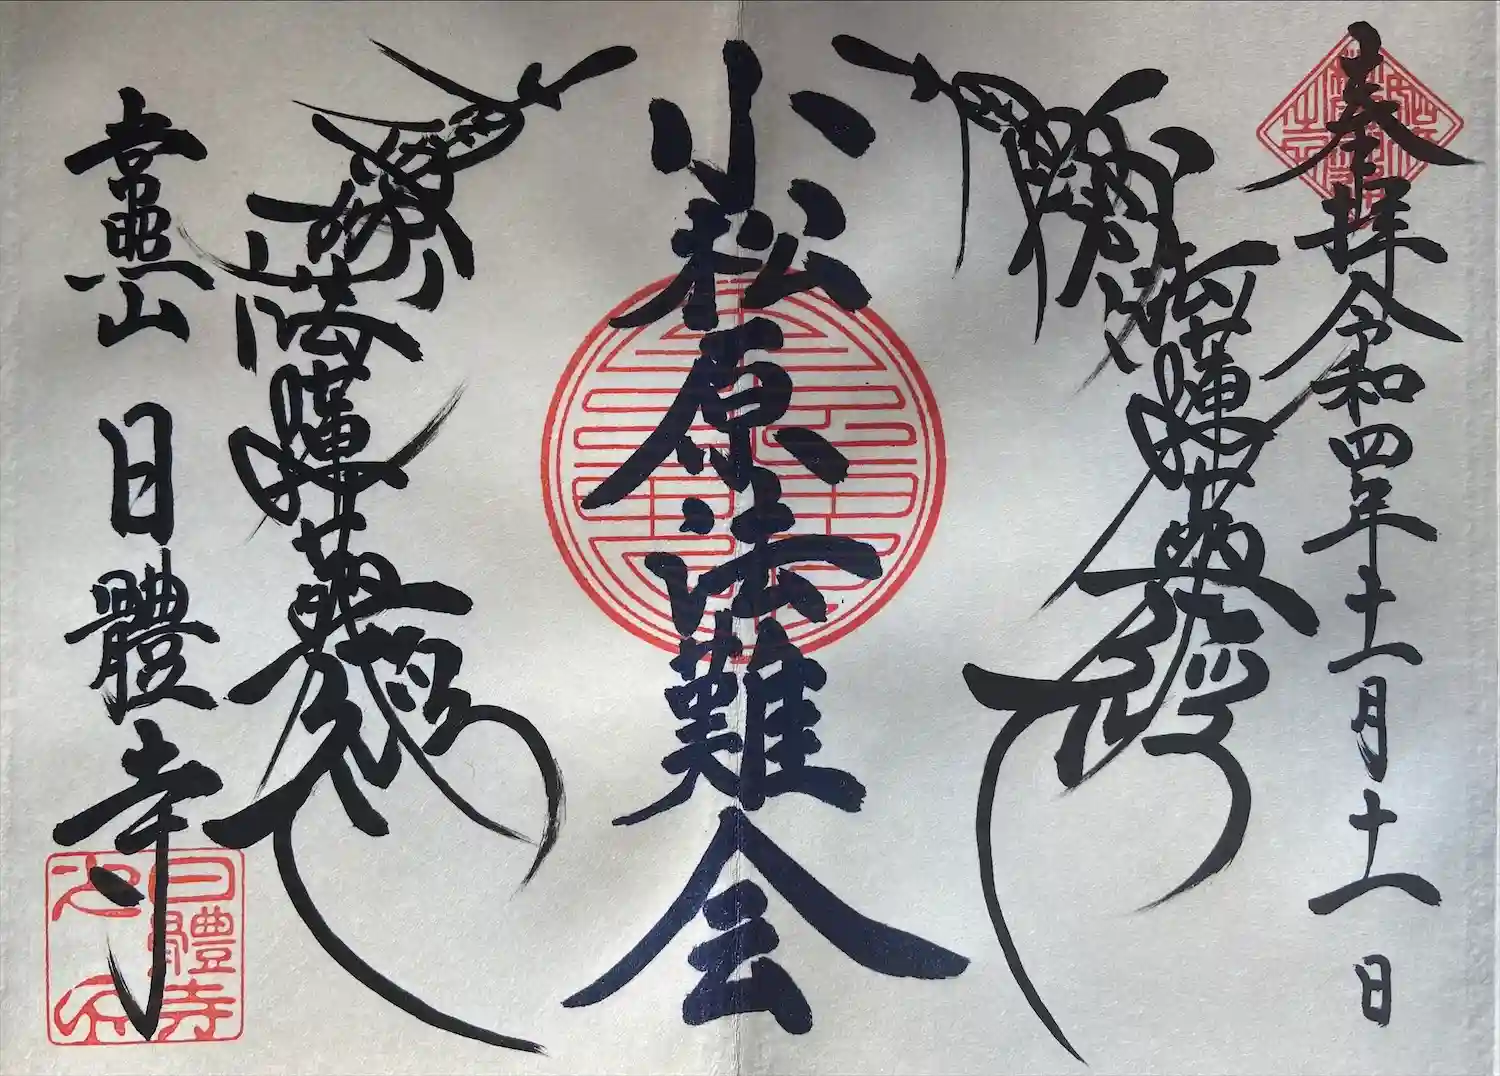 奉拝 令和四年十一月十一日
南無妙法蓮華経
小松原法難会
南無妙法蓮華経
靈山 日體寺
日體寺
之印